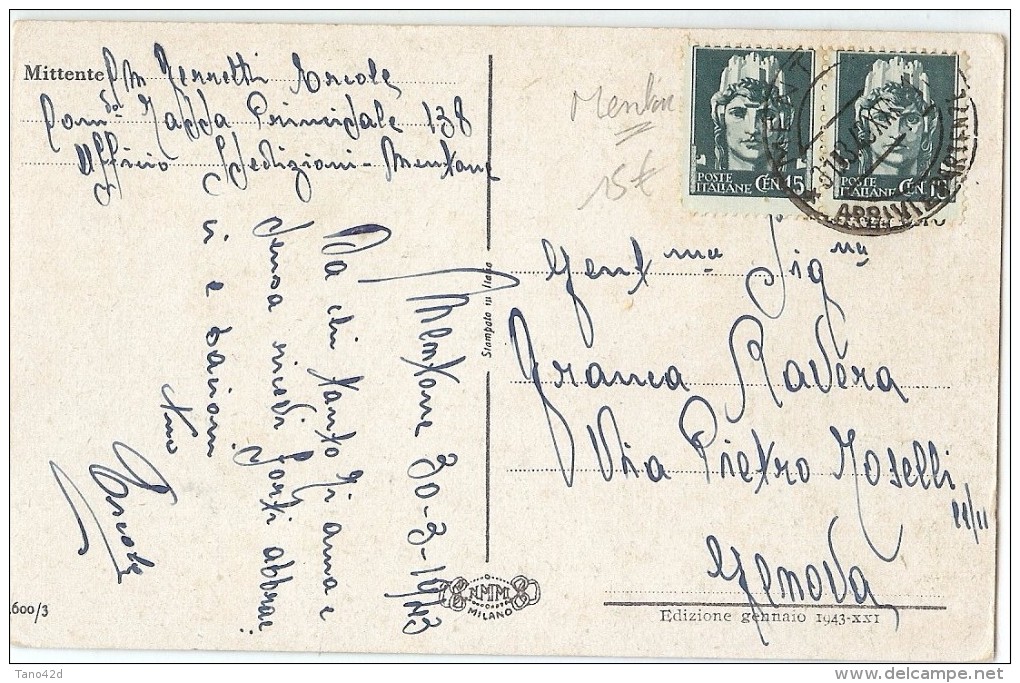 Mittente P.M. Ferretti Ercole
Com.do Mappa Principale 138
Ufficio Spedizioni - Mentone
Mentone 30-3-1943
Da chi tanto ti ama e
pensa ricevi forti abbrac
ci e bacioni
tuo
Ercole
Stampato in Italia
N.M.M.
MILANO
600/3
Menton
15€
POSTE ITALIANE CEN. 15
POSTE ITALIANE CEN. 15
Gent.ma Sig.na
Franca Ravera
Via Pietro Toselli
11/11
Genova
Edizione gennaio 1943-XXI
Tano42d
www.delcampe.net